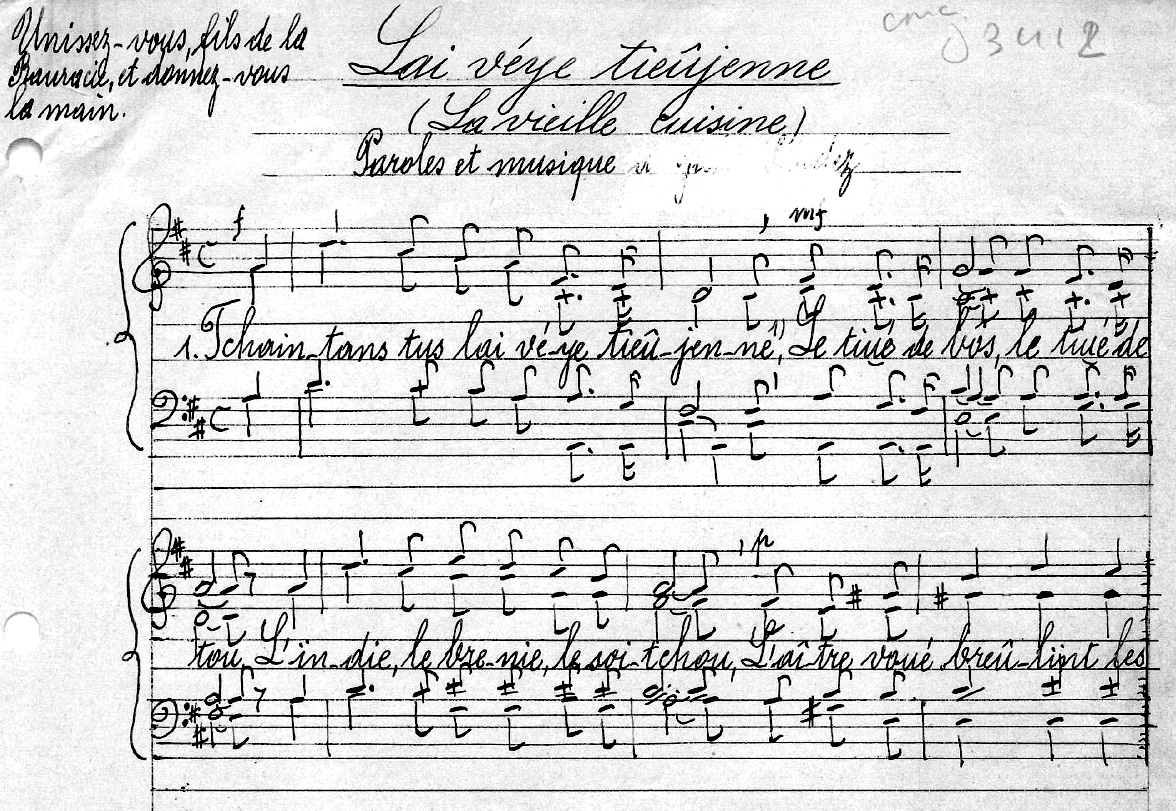 Unissez-vous, fils de la
Rauracie, et donnez-vous
la main.
cmc J 3412
Lai véye tieûjenne
(La vieille cuisine)
Paroles et musique
f mf
1. Tchain-tans tus lai vé-ye tieû-jen-ne, 1) Le tiué de bôs, le tiué de
p
tou, L'in-die, le bre-nie, le soi-tchou, L'aî-tre voué breû-lint les